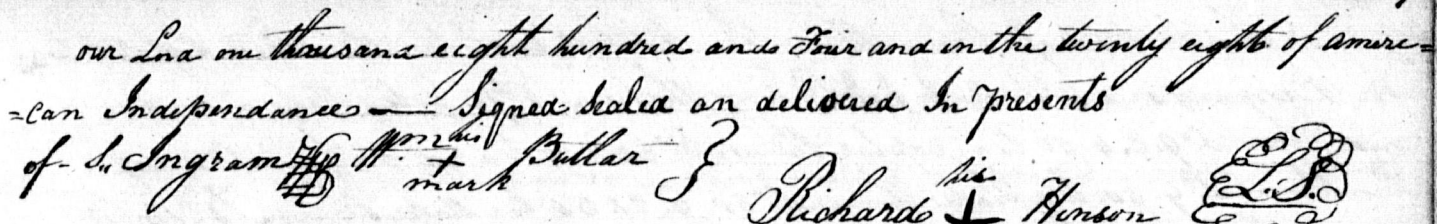 our Lord one thousand eight hundred and Four and in the twenty eight of ameri=
=can Independance — Signed Sealed an delivered In presents
of S. Ingram Wm his + mark Butlar }
Richard his + Hinson L.S.